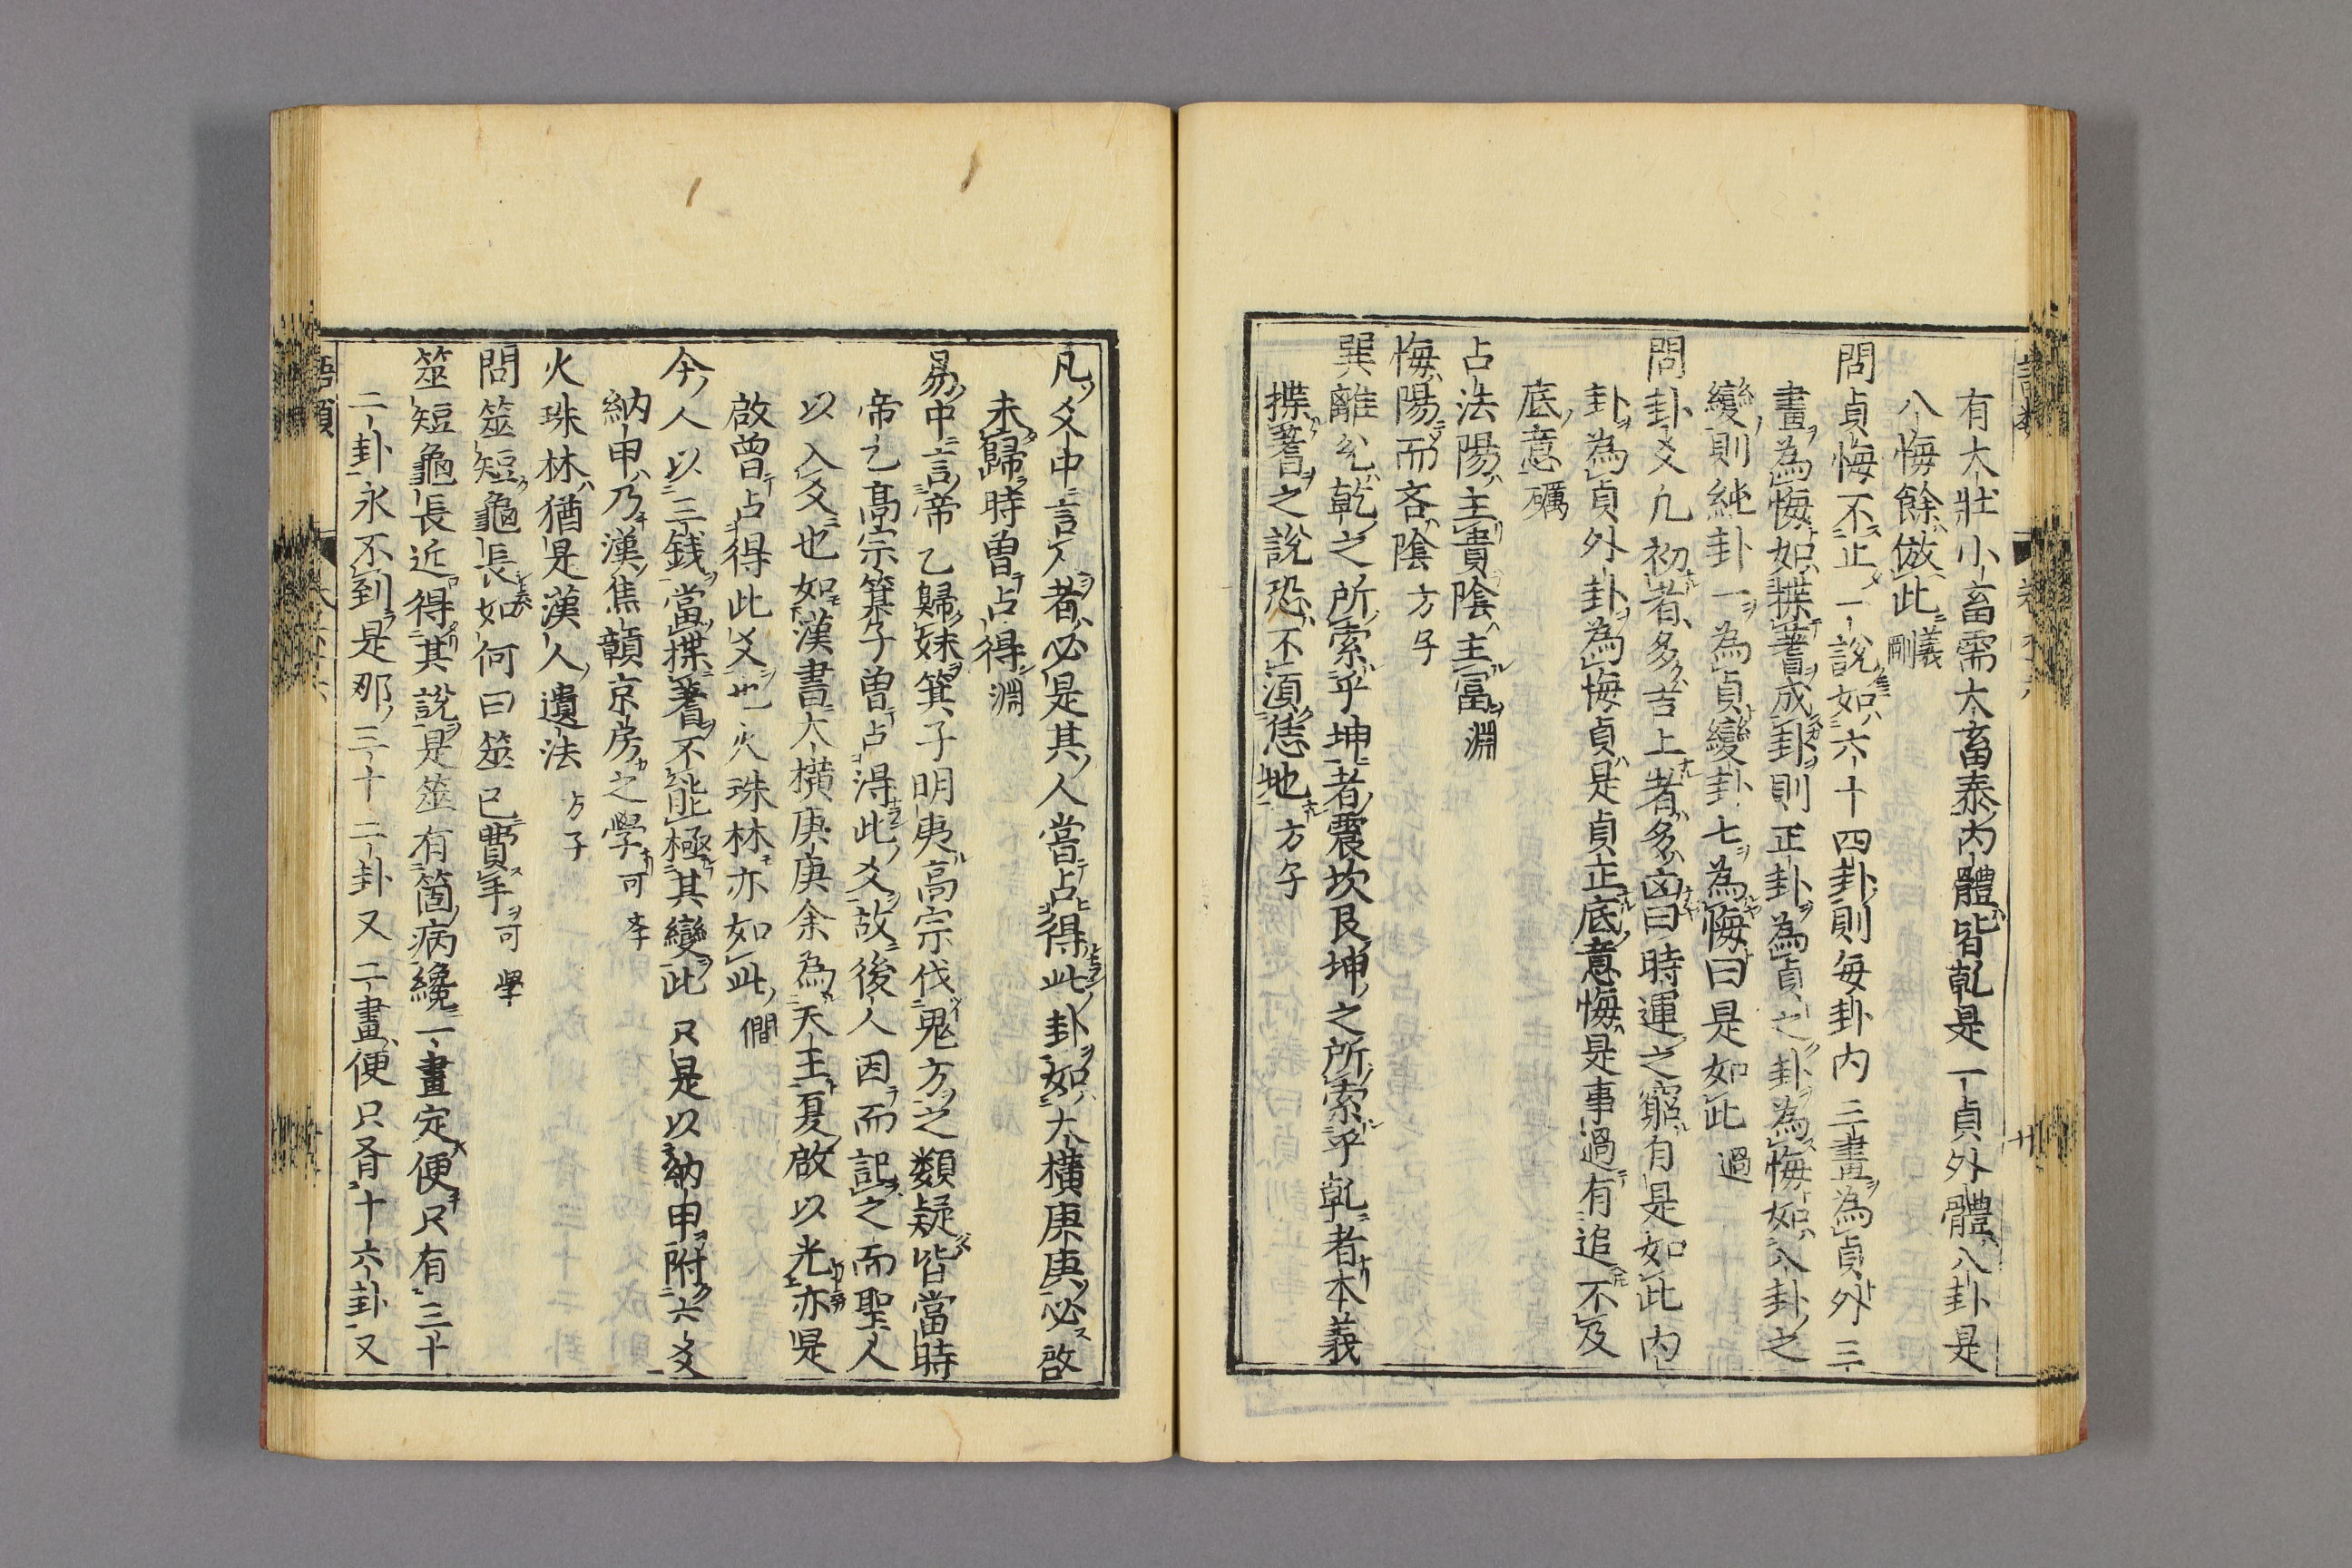 有大壯小畜需大畜泰内體皆乾是一貞外體八卦是
八悔餘倣此義剛
問貞悔不止一說如六十四卦則每卦内三畫為貞外三
畫為悔如揲蓍成卦則正卦為貞之卦為悔如八卦之
變則純卦一為貞變卦七為悔曰是如此過
問卦爻凡初者多吉上者多凶曰時運之窮有是如此内
卦為貞外卦為悔貞是貞正底意悔是事過有追不及
底意礪
占法陽主貴陰主富淵
悔陽而吝陰方子
巽離兊乾之所索乎坤者震坎艮坤之所索乎乾者本義
揲蓍之說恐不須恁地方子
凡爻中言人者必是其人當占得此卦如大橫庚庚必啓
未歸時曽占得淵
易中言帝乙歸妹箕子明夷高宗伐鬼方之類疑皆當時
帝乙高宗箕子曽占得此爻故後人因而記之而聖人
以入爻也如漢書大橫庚庚余為天王夏啟以光亦是
啟曽占得此爻也火珠林亦如此僩
今人以三錢當揲蓍不能極其變此只是以納申附六爻
納申乃漢焦贛京房之學可李
火珠林猶是漢人遺法方子
問筮短龜長如何曰筮已費手可學
筮短龜長近得其說是筮有箇病纔一畫定便只有三十
二卦永不到是那三十二卦又二畫便只有十六卦又
語類